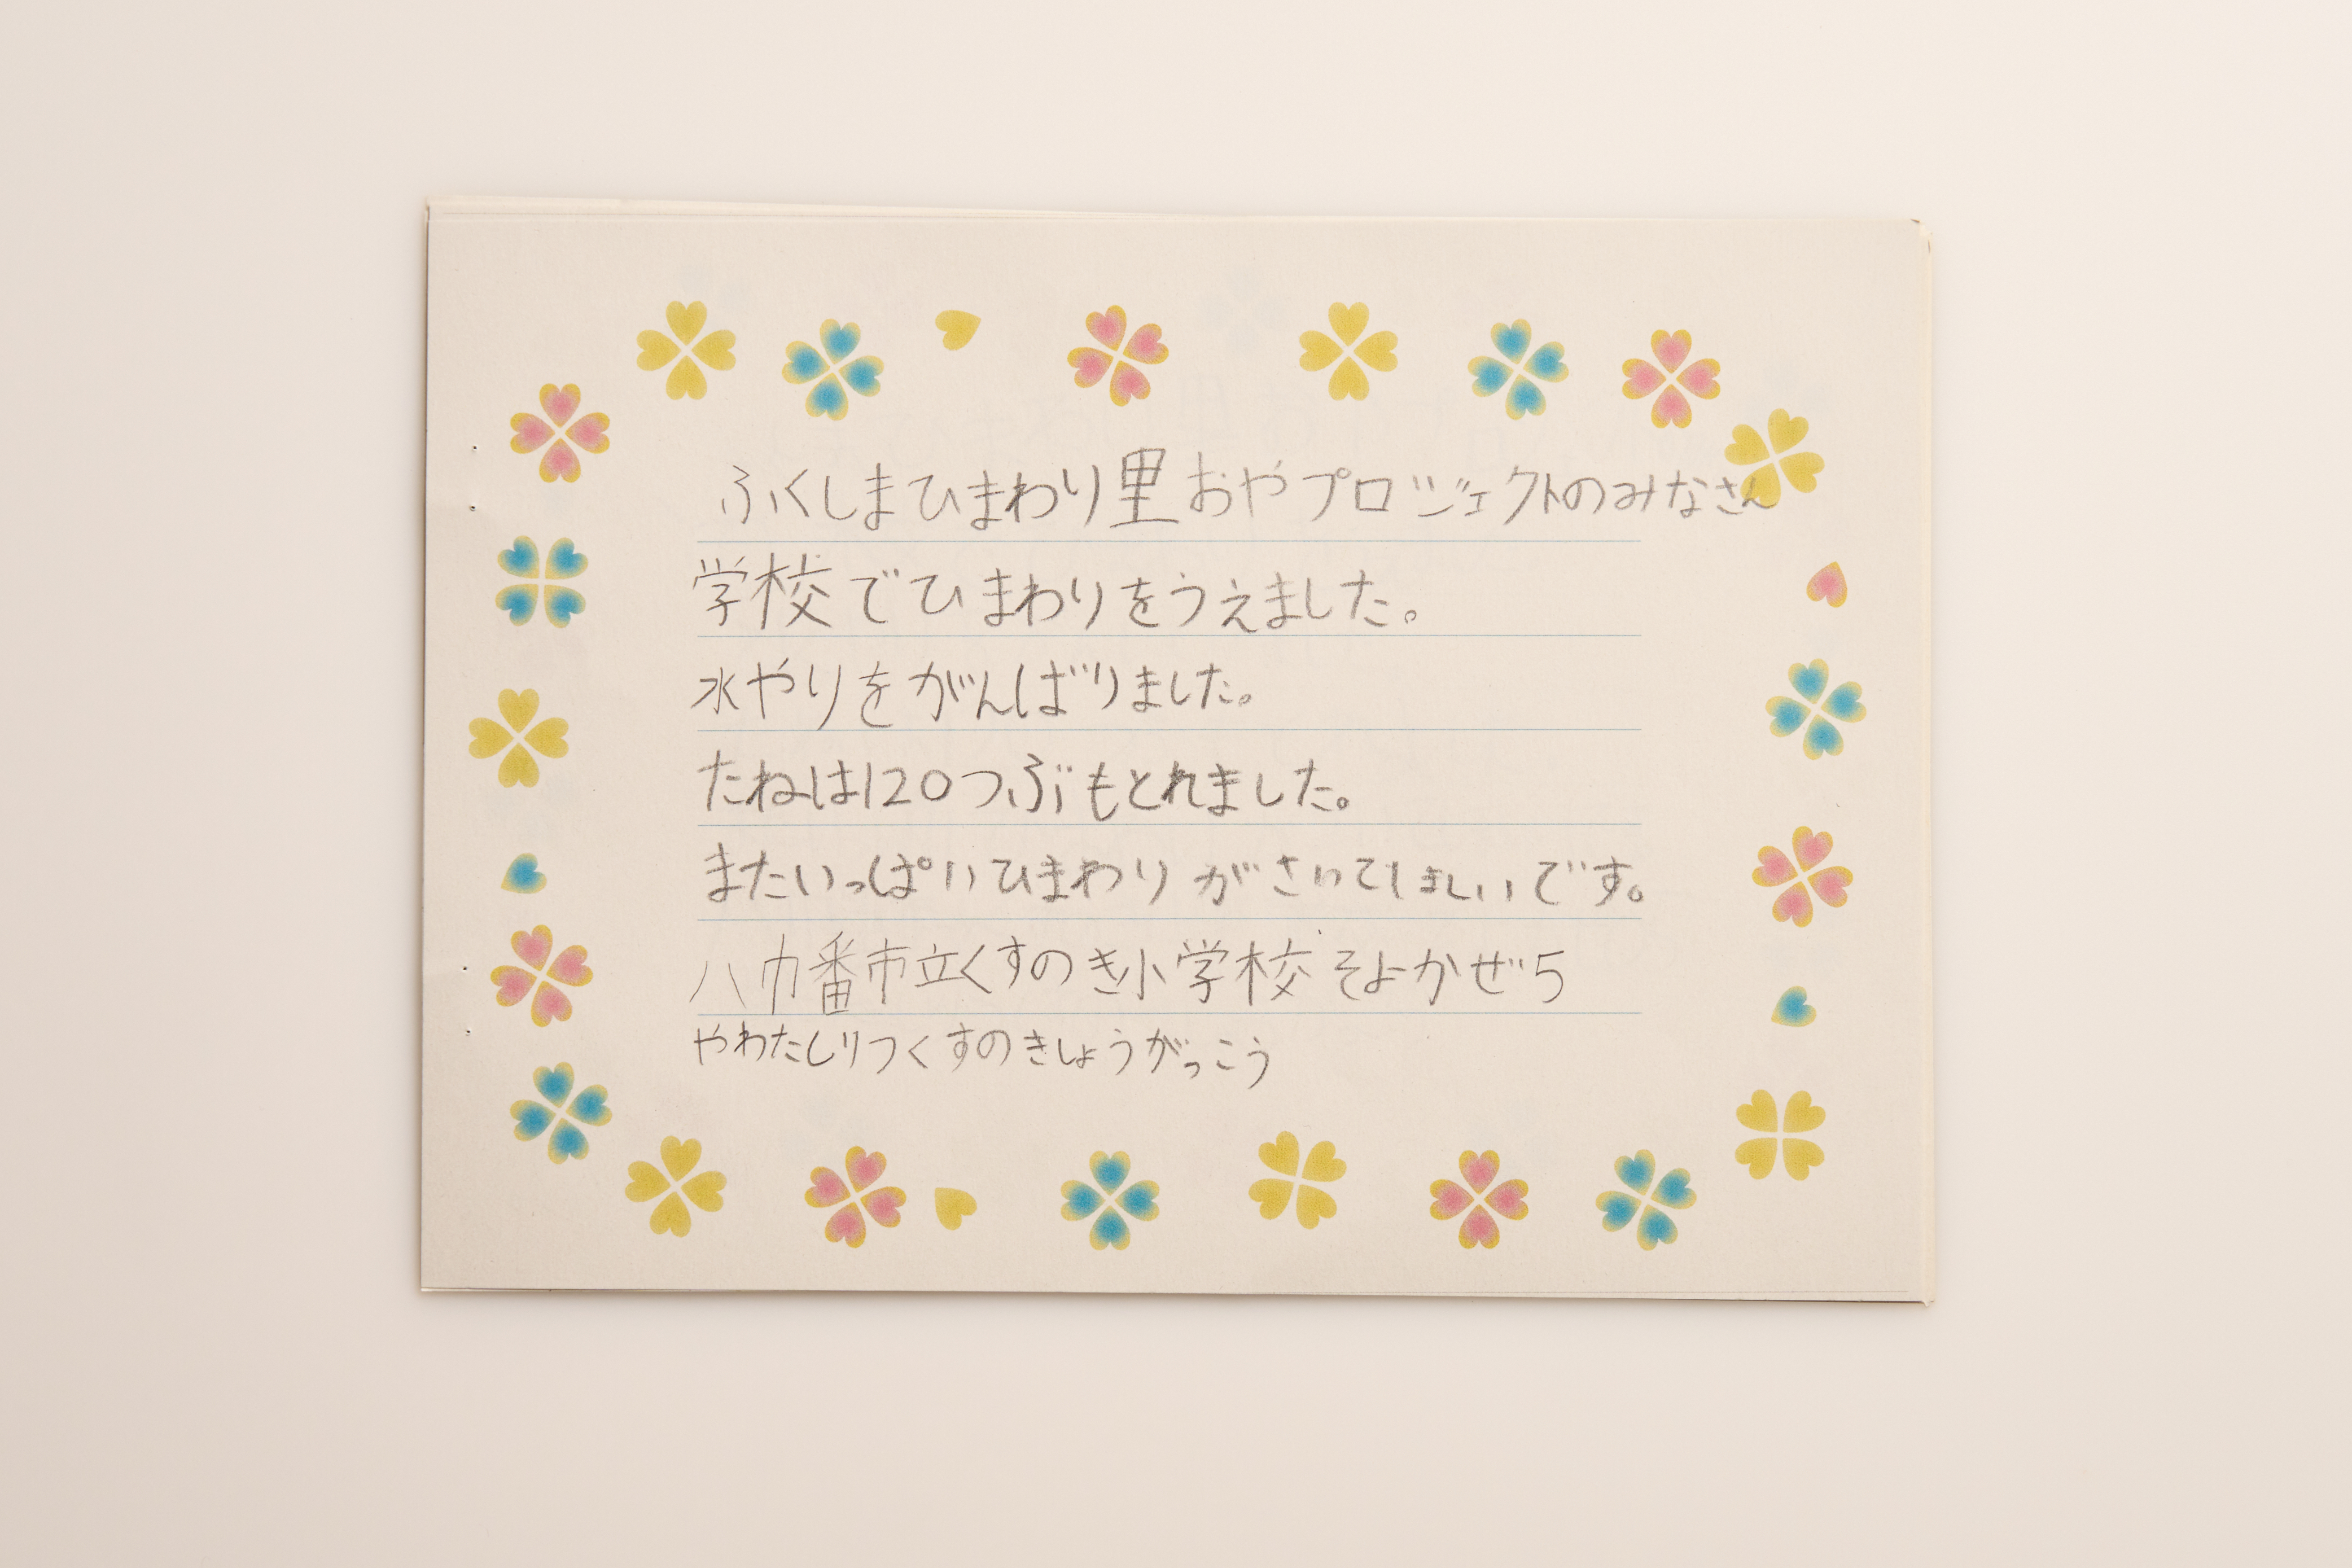 ふくしまひまわり里おやプロジェクトのみなさん
学校でひまわりをうえました。
水やりをがんばりました。
たねは120つぶもとれました。
またいっぱいひまわりがさいてほしいです。
八巾番市立くすのき小学校そよかぜ5
やわたしりつくすのきしょうがっこう